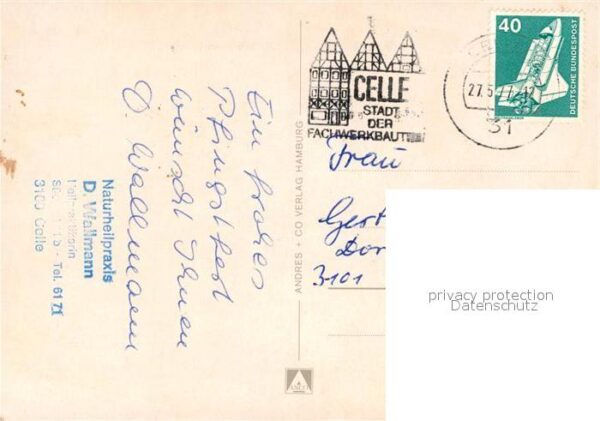 Ein frohes
Pfingstfest
wünscht Ihnen
D. Wallmann
Naturheilpraxis
D. Wallmann
Heilpraktikerin
Tel. 61 71
3100 Celle
ANDRES + CO VERLAG HAMBURG
CELLE
STADT
DER
FACHWERKBAUTEN
40
DEUTSCHE BUNDESPOST
31
Frau
3101
privacy protection
Datenschutz